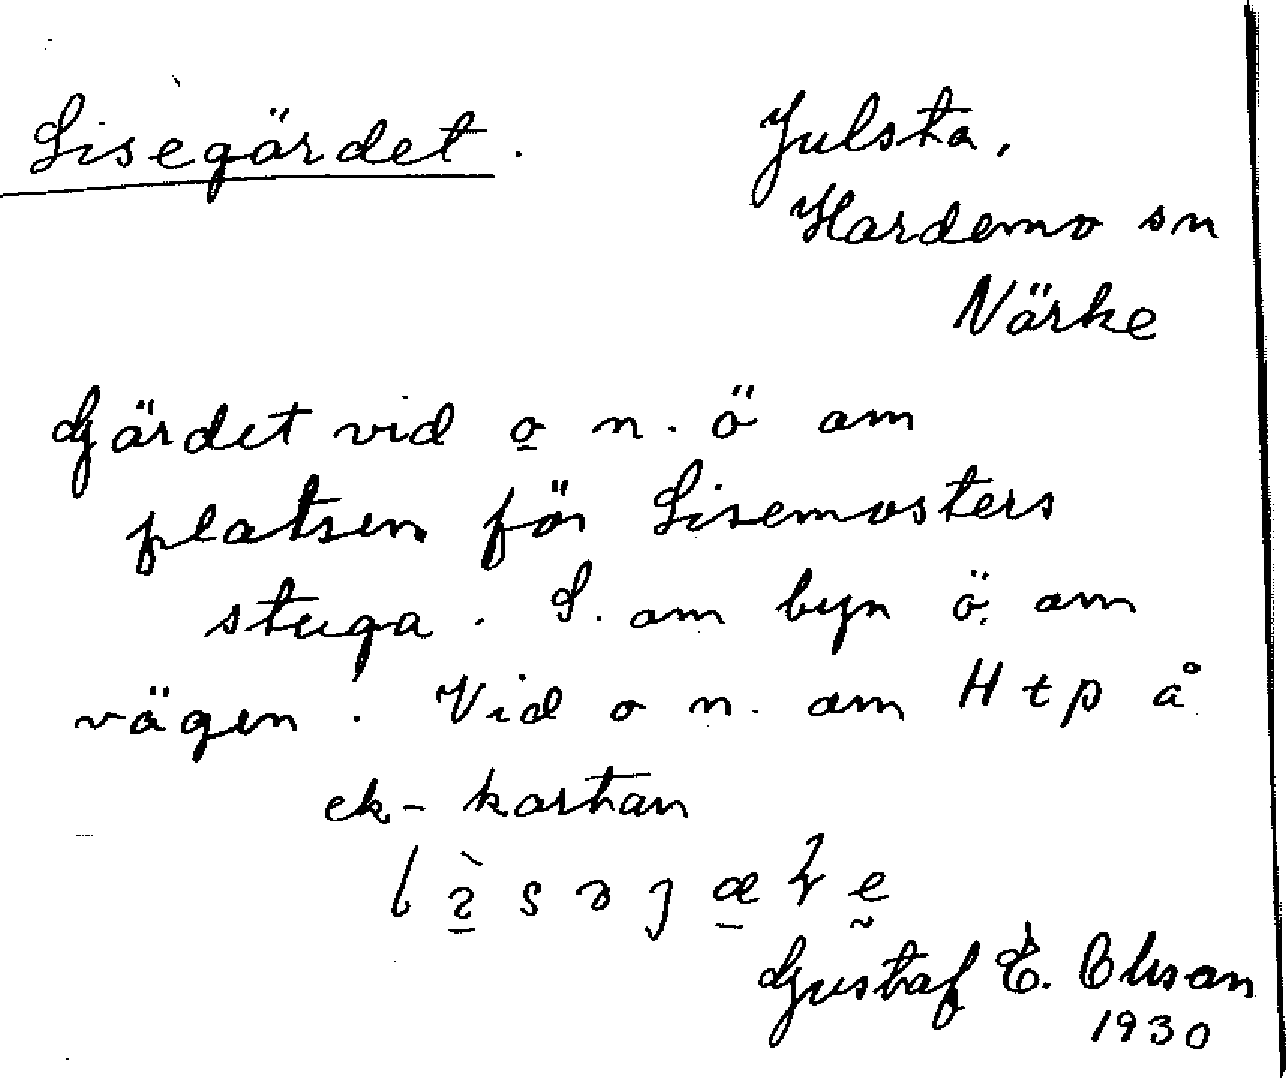 Lisegärdet. Julsta,
Hardemo sn
Närke
Gärdet vid o n. ö om
platsen för Lisemosters
stuga. S. om byn ö. om
vägen. Vid o n. om H t p å
ek-kartan
Gustaf E. Olsson
1930